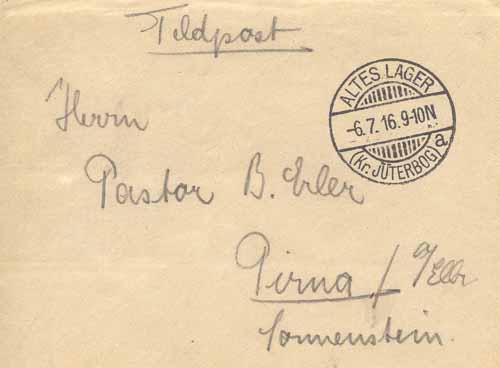 Feldpost
ALTES LAGER
-6.7.16.9-10N
(Kr. JÜTERBOG) a
Herrn
Pastor B. Erler
Pirna / a/Elbe
Sonnenstein.